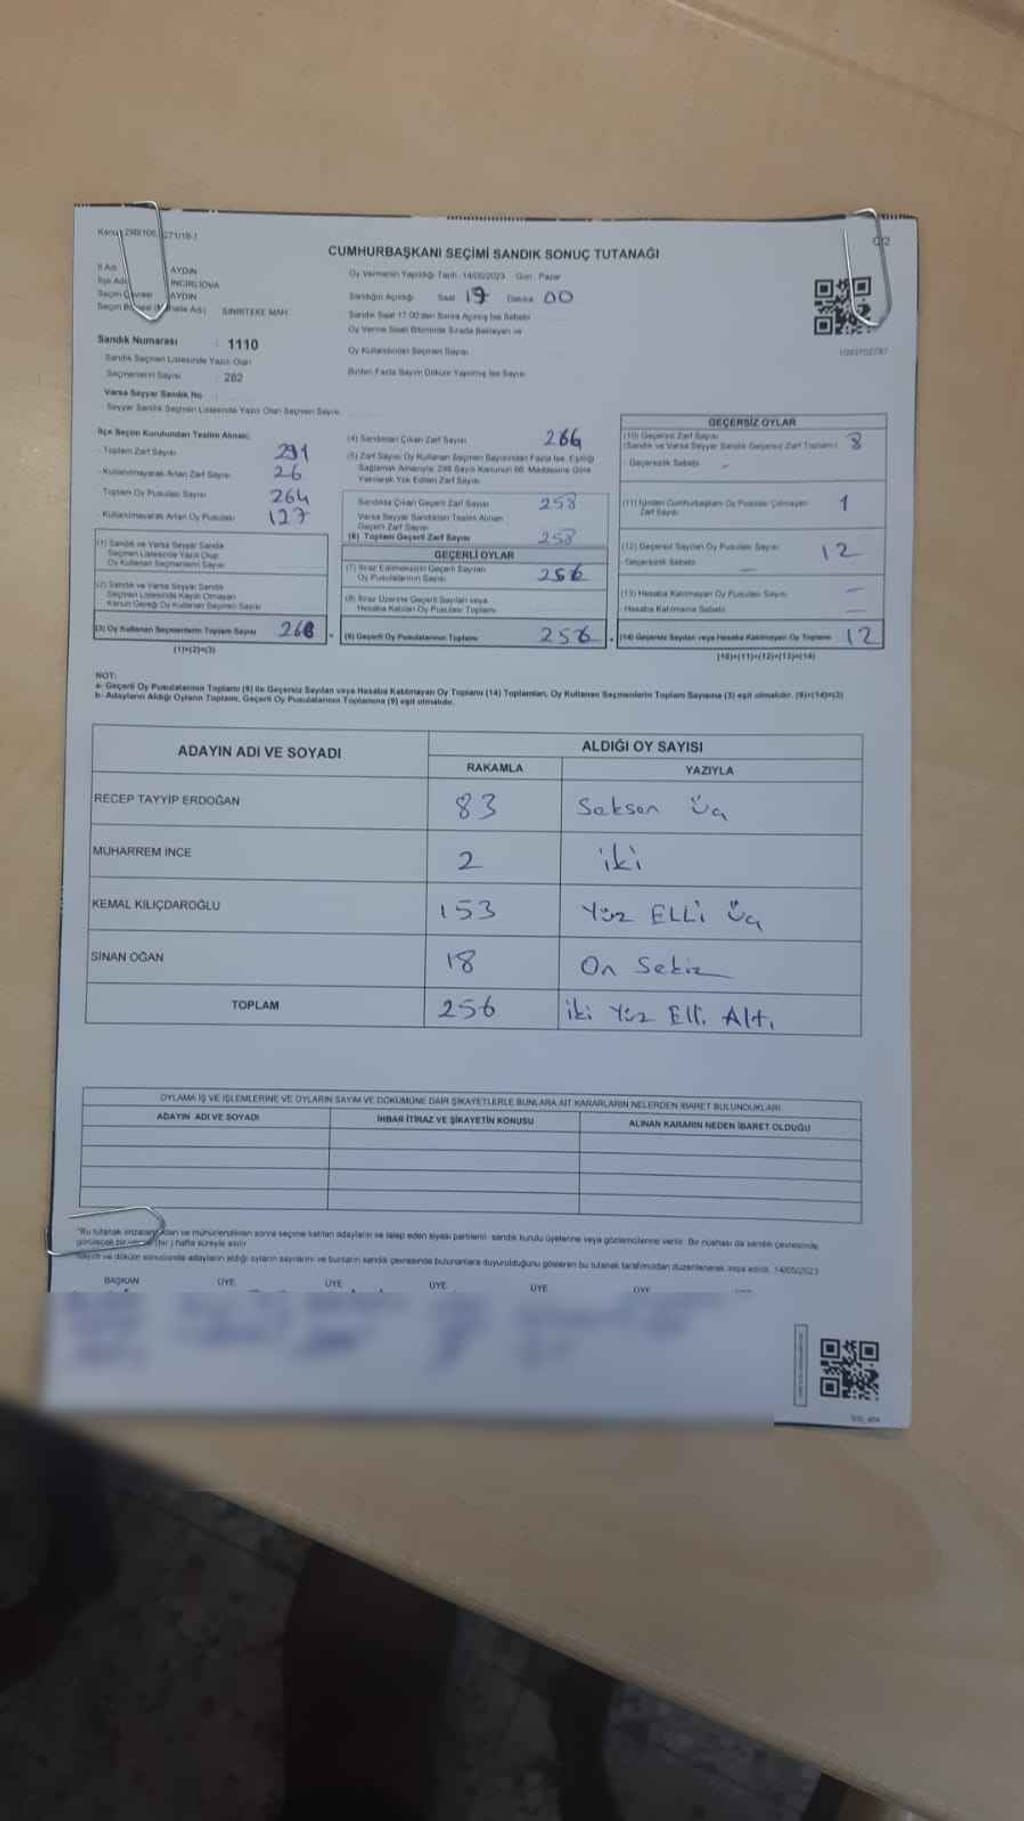 CUMHURBAŞKANI SEÇİMİ SANDIK SONUÇ TUTANAĞI
İl Adı AYDIN
İlçe Adı İNCİRLİOVA
Seçim Çevresi AYDIN
SINIRTEKE MAH.
Oy Vermenin Yapıldığı Tarih :14/05/2023 Gün : Pazar
Sandığın Açıldığı Saat 17 Dakika 00
Sandık Saat 17.00'den Sonra Açılmış İse Sebebi
Oy Verme Süresi Bitiminde Sırada Bekleyen ve
Oy Kullandırılan Seçmen Sayısı
Birden Fazla Sayım Döküm Yapılmış İse Sayısı
Sandık Numarası : 1110
Sandık Seçmen Listesinde Yazılı Olan
Seçmenlerin Sayısı : 282
Varsa Seyyar Sandık No
Seyyar Sandık Seçmen Listesinde Yazılı Olan Seçmen Sayısı
İlçe Seçim Kurulundan Teslim Alınan;
Toplam Zarf Sayısı 291
Kullanılmayarak Artan Zarf Sayısı 26
Toplam Oy Pusulası Sayısı 264
Kullanılmayarak Artan Oy Pusulası 127
(1) Sandık ve Varsa Seyyar Sandık
Seçmen Listesinde Yazılı Olup
Oy Kullanan Seçmenlerin Sayısı
(2) Sandık ve Varsa Seyyar Sandık
Seçmen Listesinde Kayıtlı Olmayan
Kanun Gereği Oy Kullanan Seçmen Sayısı
(3) Oy Kullanan Seçmenlerin Toplam Sayısı 268
(1)+(2)=(3)
(4) Sandıktan Çıkan Zarf Sayısı 266
(5) Zarf Sayısı Oy Kullanan Seçmen Sayısından Fazla İse, Eşitliği
Sağlamak Amacıyla, 298 Sayılı Kanunun 98. Maddesine Göre
Yakılarak Yok Edilen Zarf Sayısı
Sandıkta Çıkan Geçerli Zarf Sayısı 258
Varsa Seyyar Sandıktan Teslim Alınan
Geçerli Zarf Sayısı
(6) Toplam Geçerli Zarf Sayısı 258
GEÇERLİ OYLAR
(7) İtiraz Edilmeksizin Geçerli Sayılan
Oy Pusulalarının Sayısı 256
(8) İtiraz Üzerine Geçerli Sayılan veya
Hesaba Katılan Oy Pusulası Toplamı
(9) Geçerli Oy Pusulalarının Toplamı 256
GEÇERSİZ OYLAR
(10) Geçersiz Zarf Sayısı 8
(Sandık ve Varsa Seyyar Sandık Geçersiz Zarf Toplamı)
Geçersizlik Sebebi -
(11) İçinden Cumhurbaşkanı Oy Pusulası Çıkmayan
Zarf Sayısı 1
(12) Geçersiz Sayılan Oy Pusulası Sayısı 12
Geçersizlik Sebebi -
(13) Hesaba Katılmayan Oy Pusulası Sayısı -
Hesaba Katılmama Sebebi -
(14) Geçersiz Sayılan veya Hesaba Katılmayan Oy Toplamı 12
(10)+(11)+(12)+(13)=(14)
NOT:
a- Geçerli Oy Pusulalarının Toplamı (9) ile Geçersiz Sayılan veya Hesaba Katılmayan Oy Toplamı (14) Toplamları, Oy Kullanan Seçmenlerin Toplam Sayısına (3) eşit olmalıdır. (9)+(14)=(3)
b- Adayların Aldığı Oyların Toplamı, Geçerli Oy Pusulalarının Toplamına (9) eşit olmalıdır.
ADAYIN ADI VE SOYADI ALDIĞI OY SAYISI
RAKAMLA YAZIYLA
RECEP TAYYİP ERDOĞAN 83 Seksen Üç
MUHARREM İNCE 2 iki
KEMAL KILIÇDAROĞLU 153 Yüz ELLİ Üç
SİNAN OĞAN 18 On Sekiz
TOPLAM 256 iki Yüz Elli Altı
OYLAMA İŞ VE İŞLEMLERİNE VE OYLARIN SAYIM VE DÖKÜMÜNE DAİR ŞİKAYETLERLE BUNLARA AİT KARARLARIN NELERDEN İBARET BULUNDUKLARI
ADAYIN ADI VE SOYADI İHBAR İTİRAZ VE ŞİKAYETİN KONUSU ALINAN KARARIN NEDEN İBARET OLDUĞU
BAŞKAN ÜYE ÜYE ÜYE ÜYE ÜYE